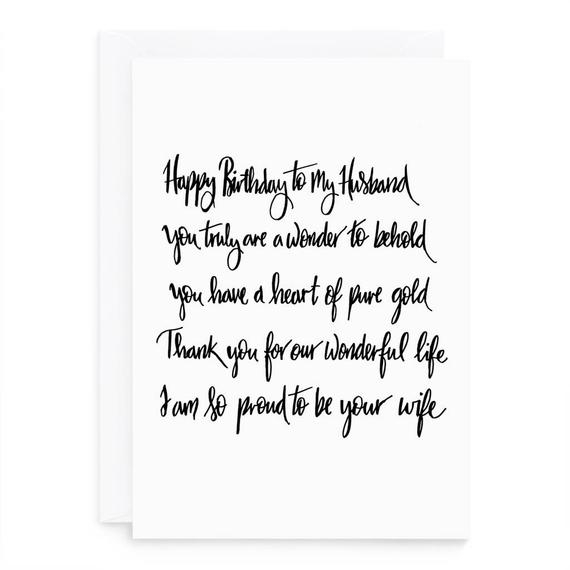 Happy Birthday to My Husband
You truly are a wonder to behold
you have a heart of pure gold
Thank you for our wonderful life
I am so proud to be your wife